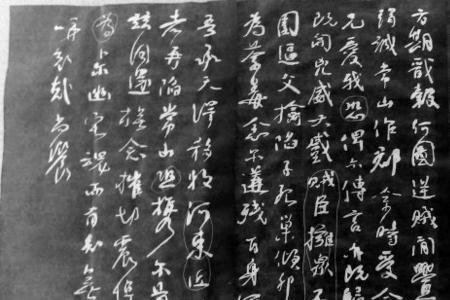 方期戩穀何圖逆賊間舋
竭誠常山作郡余時受命
兄愛我恐俾尔傳言尔既歸
既開凶威大蹙賊臣擁眾不
圍逼父擒陷子死巢傾卵
為荼毒念尔遘殘百身
吾承天澤移牧河東近
者再陷常山提攜尔首
茲同還撫念摧切震悼
尔幽宅魂而有知無
呼哀哉尚饗